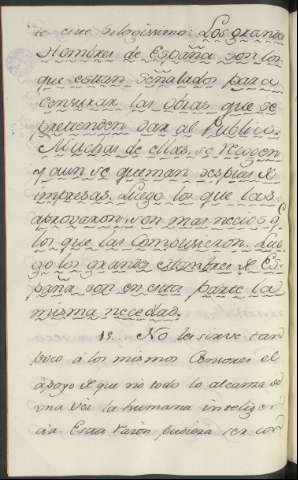 te que silogissimo: Los grandes
Hombres de España son los
que están señalados para
censurar las obras que se
pretenden dar al Publico.
Muchas de ellas, se recogen
y aun se queman despues de
impresas. Luego los que las
aprovaron son mas necios q.e
los que las compusieron. Lue
go los grandes Hombres de Es
paña son en esta parte la
misma necedad.
No les sirve tam
poco a los mismos Censores el
apoyo de que no todo lo alcanza de
una vez la humana inteligen
cia Esta razon pudiera ser con